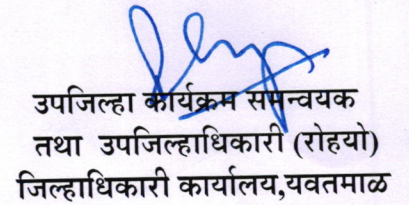 उपजिल्हा कार्यक्रम समन्वयक
तथा उपजिल्हाधिकारी (रोहयो)
जिल्हाधिकारी कार्यालय,यवतमाळ